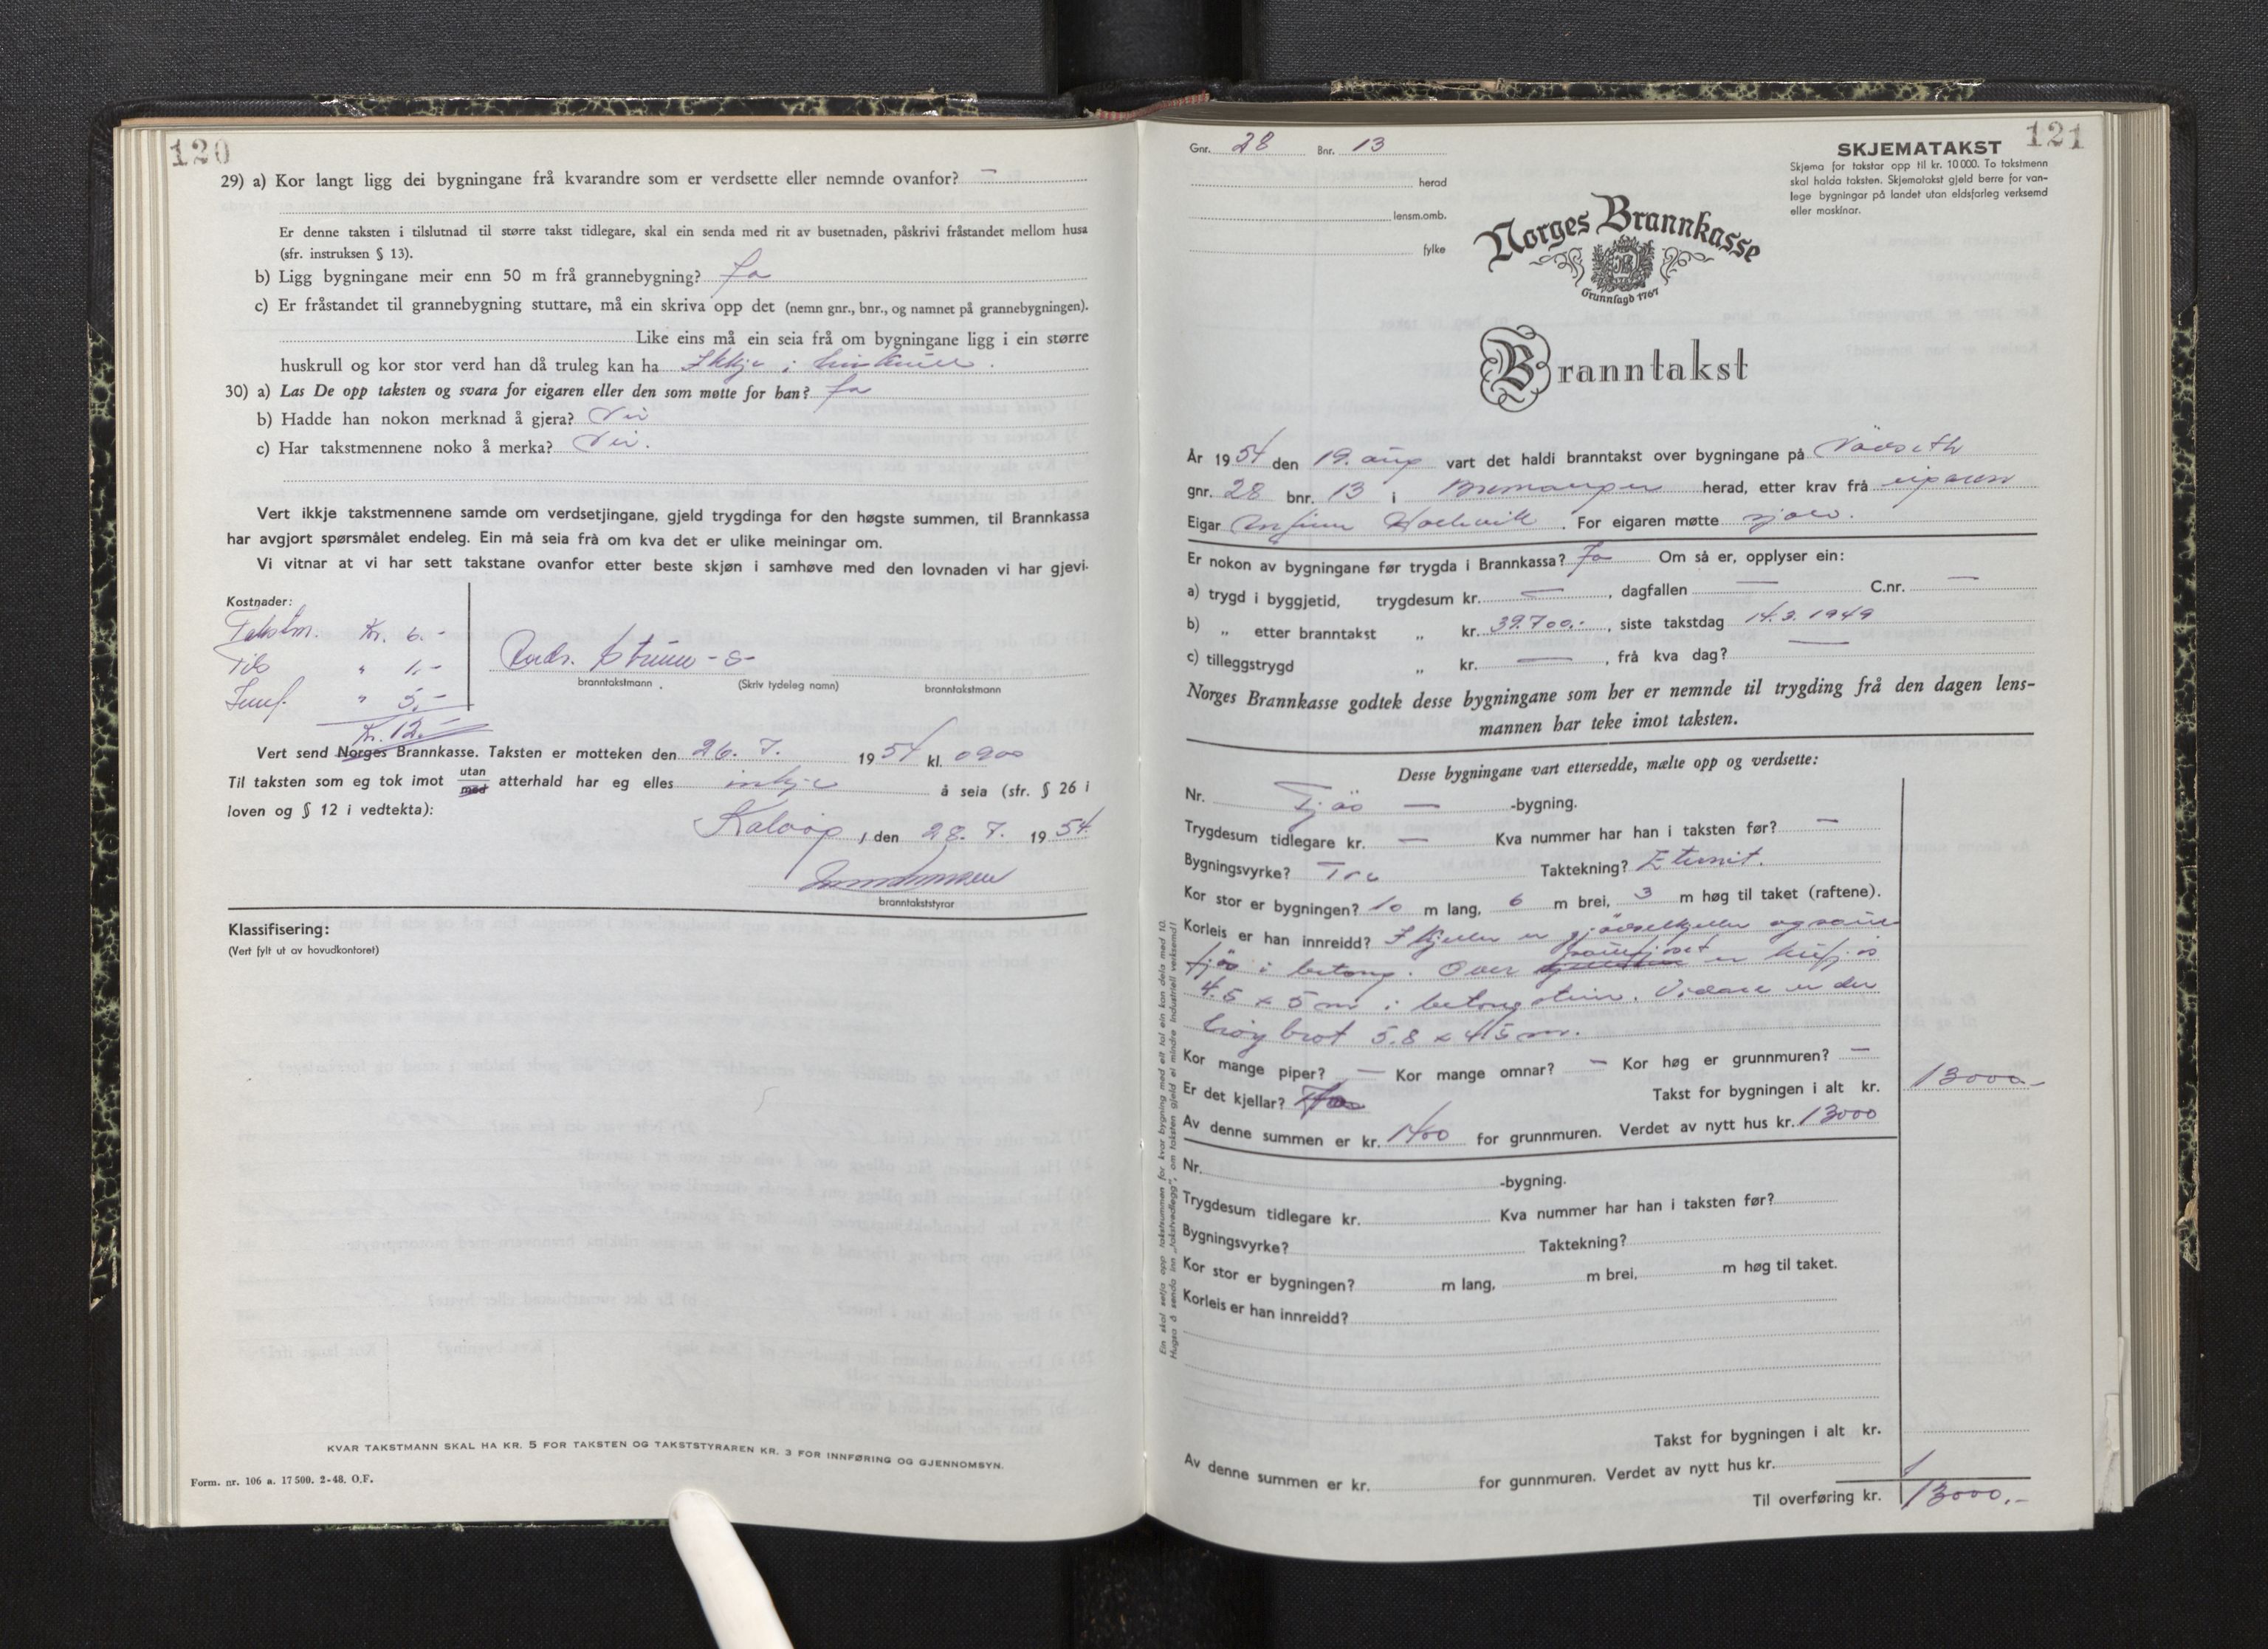 120
29) a) Kor langt ligg dei bygningane frå kvarandre som er verdsette eller nemnde ovanfor? —
Er denne taksten i tilslutnad til større takst tidlegare, skal ein senda med rit av busetnaden, påskrivi fråstandet mellom husa
(sfr. instruksen § 13).
b) Ligg bygningane meir enn 50 m frå grannebygning? Ja
c) Er fråstandet til grannebygning stuttare, må ein skriva opp det (nemn gnr., bnr., og namnet på grannebygningen).
Like eins må ein seia frå om bygningane ligg i ein større
huskrull og kor stor verd han då truleg kan ha Ikkje i huskrull.
30) a) Las De opp taksten og svara for eigaren eller den som møtte for han? Ja
b) Hadde han nokon merknad å gjera? Nei
c) Har takstmennene noko å merka? Nei.
Vert ikkje takstmennene samde om verdsetjingane, gjeld trygdinga for den høgste summen, til Brannkassa
har avgjort spørsmålet endeleg. Ein må seia frå om kva det er ulike meiningar om.
Vi vitnar at vi har sett takstane ovanfor etter beste skjøn i samhøve med den lovnaden vi har gjevi.
Kostnader:
Takstm. Kr. 6.-
" 1.-
Innf. " 5.-
Kr. 12.-
Andr.
branntakstmann. (Skriv tydeleg namn) branntakstmann
Vert send Norges Brannkasse. Taksten er motteken den 26. 7. 1954 kl. 0900
Til taksten som eg tok imot utan/med atterhald har eg elles inkje å seia (sfr. § 26 i
loven og § 12 i vedtekta):
Kalvåg, den 28. 7. 1954
branntakststyrar
Klassifisering:
(Vert fylt ut av hovudkontoret)
KVAR TAKSTMANN SKAL HA KR. 5 FOR TAKSTEN OG TAKSTSTYRAREN KR. 3 FOR INNFØRING OG GJENNOMSYN.
Form. nr. 106 a. 17 500. 2-48. O.F.
121
Gnr. 28 Bnr. 13
herad
lensm.omb.
fylke
SKJEMATAKST
Skjema for takstar opp til kr. 10 000. To takstmenn
skal halda taksten. Skjematakst gjeld berre for van-
lege bygningar på landet utan eldsfarleg verksemd
eller maskinar.
Norges Brannkasse
Grunnlagd 1767
Branntakst
År 1954 den 19. aug vart det haldi branntakst over bygningane på
gnr. 28 bnr. 13 i Bremanger herad, etter krav frå eigaren
Eigar . For eigaren møtte sjølv.
Er nokon av bygningane før trygda i Brannkassa? Ja Om så er, opplyser ein:
a) trygd i byggjetid, trygdesum kr. —, dagfallen — C.nr. —
b) „ etter branntakst „ kr. 39.700.-, siste takstdag 14.3.1949
c) tilleggstrygd „ kr. —, frå kva dag? —
Norges Brannkasse godtek desse bygningane som her er nemnde til trygding frå den dagen lens-
mannen har teke imot taksten.
Desse bygningane vart ettersedde, mælte opp og verdsette:
Nr. Fjøs — -bygning.
Trygdesum tidlegare kr. — Kva nummer har han i taksten før? —
Bygningsvyrke? Tre Taktekning? Eternit.
Kor stor er bygningen? 10 m lang, 6 m brei, 3 m høg til taket (raftene).
Korleis er han innreidd? I kjeller er gjødselkjeller og saue
fjøs i betong. Over sauefjøset er kufjøs
4.5 x 5 m i betongstein. Vidare er der
høybrot 5.8 x 4.5 m.
Kor mange piper? — Kor mange omnar? — Kor høg er grunnmuren? —
Er det kjellar? Takst for bygningen i alt kr. 13000.-
Av denne summen er kr. 1400 for grunnmuren. Verdet av nytt hus kr. 13000
Nr. -bygning.
Trygdesum tidlegare kr. Kva nummer har han i taksten før?
Bygningsvyrke? Taktekning?
Kor stor er bygningen? m lang, m brei, m høg til taket.
Korleis er han innreidd?
Takst for bygningen i alt kr.
Av denne summen er kr. for gunnmuren. Verdet av nytt hus kr.
Til overføring kr. 13000.-
Ein skal setja opp takstsummen for kvar bygning med eit tal ein kan dela med 10.
Hugsa å senda inn „Takstvedlegg", om taksten gjeld ei mindre industriell verksemd!